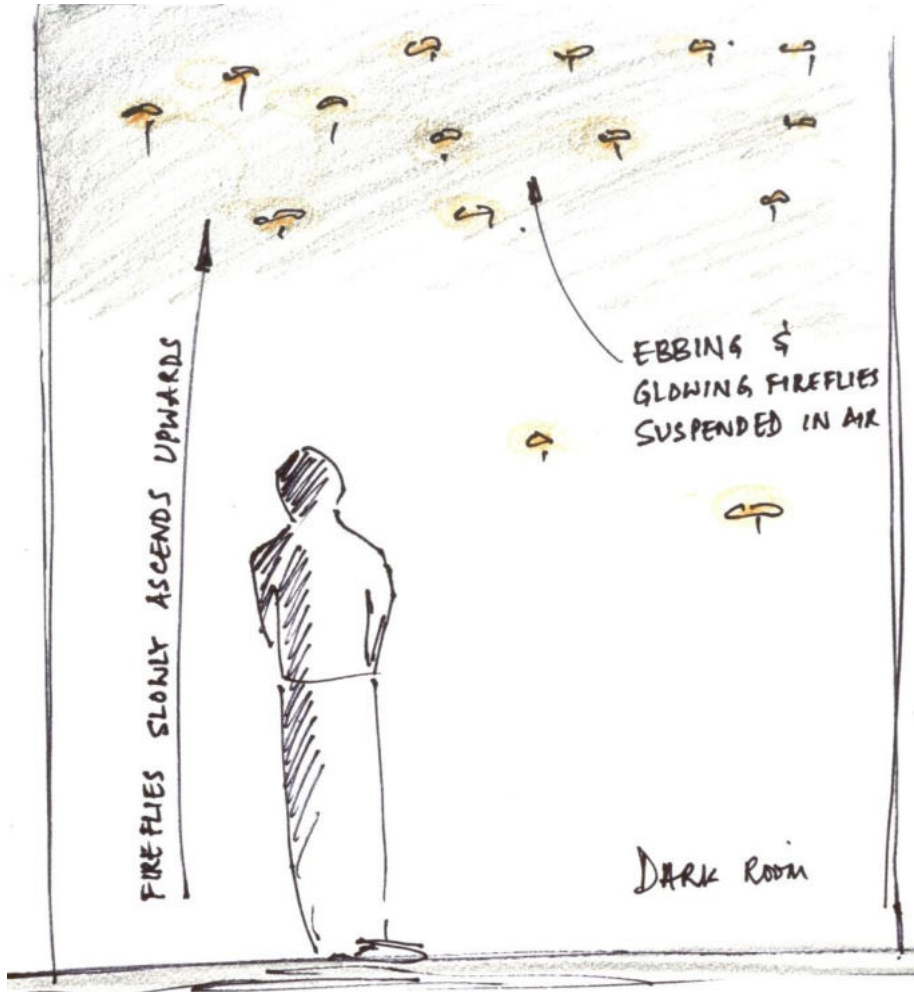 FIREFLIES SLOWLY ASCENDS UPWARDS
EBBING &
GLOWING FIREFLIES
SUSPENDED IN AIR
DARK ROOM